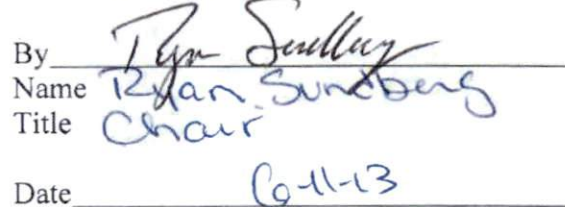 By Ryan Sundberg
Name Ryan Sundberg
Title Chair
Date 6-11-13